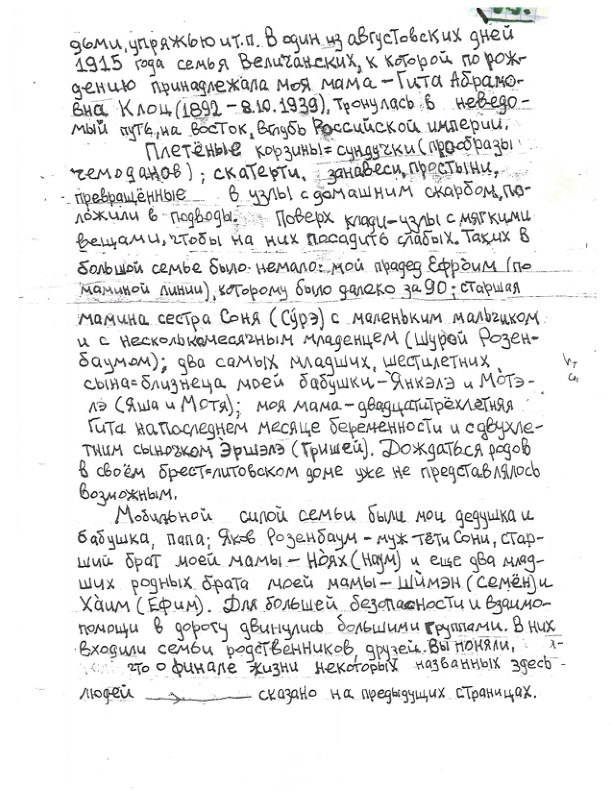 дьми, упряжью и т.п. В один из августовских дней
1915 года семья Величанских, к которой по рож-
дению принадлежала моя мама – Гита Абрамо-
вна Клоц (1892 – 8.10.1939), тронулась в неведо-
мый путь, на восток, вглубь Российской империи.
Плетёные корзины=сундучки (прообразы
чемоданов); скатерти, занавеси, простыни,
превращённые в узлы с домашним скарбом, по-
ложили в подводы. Поверх клади – узлы с мягкими
вещами, чтобы на них посадить слабых. Таких в
большой семье было немало: мой прадед Ефроим (по
маминой линии), которому было далеко за 90; старшая
мамина сестра Соня (Сурэ) с маленьким мальчиком
и с несколькомесячным младенцем (Шурой Розен-
баумом); два самых младших, шестилетних
сына=близнеца моей бабушки – Янкэлэ и Мотэ-
лэ (Яша и Мотя); моя мама – двадцатитрёхлетняя
Гита на последнем месяце беременности и с двухле-
тним сыночком Эршэлэ (Гришей). Дождаться родов
в своём брест=литовском доме уже не представлялось
возможным.
Мобильной силой семьи были мои дедушка и
бабушка, папа; Яков Розенбаум – муж тёти Сони, стар-
ший брат моей мамы – Ноях (Наум) и еще два млад-
ших родных брата моей мамы – Шимэн (Семён) и
Хаим (Ефим). Для большей безопасности и взаимо-
помощи в дорогу двинулись большими группами. В них
входили семьи родственников, друзей. Вы поняли,
что о финале жизни некоторых названных здесь
людей сказано на предыдущих страницах.